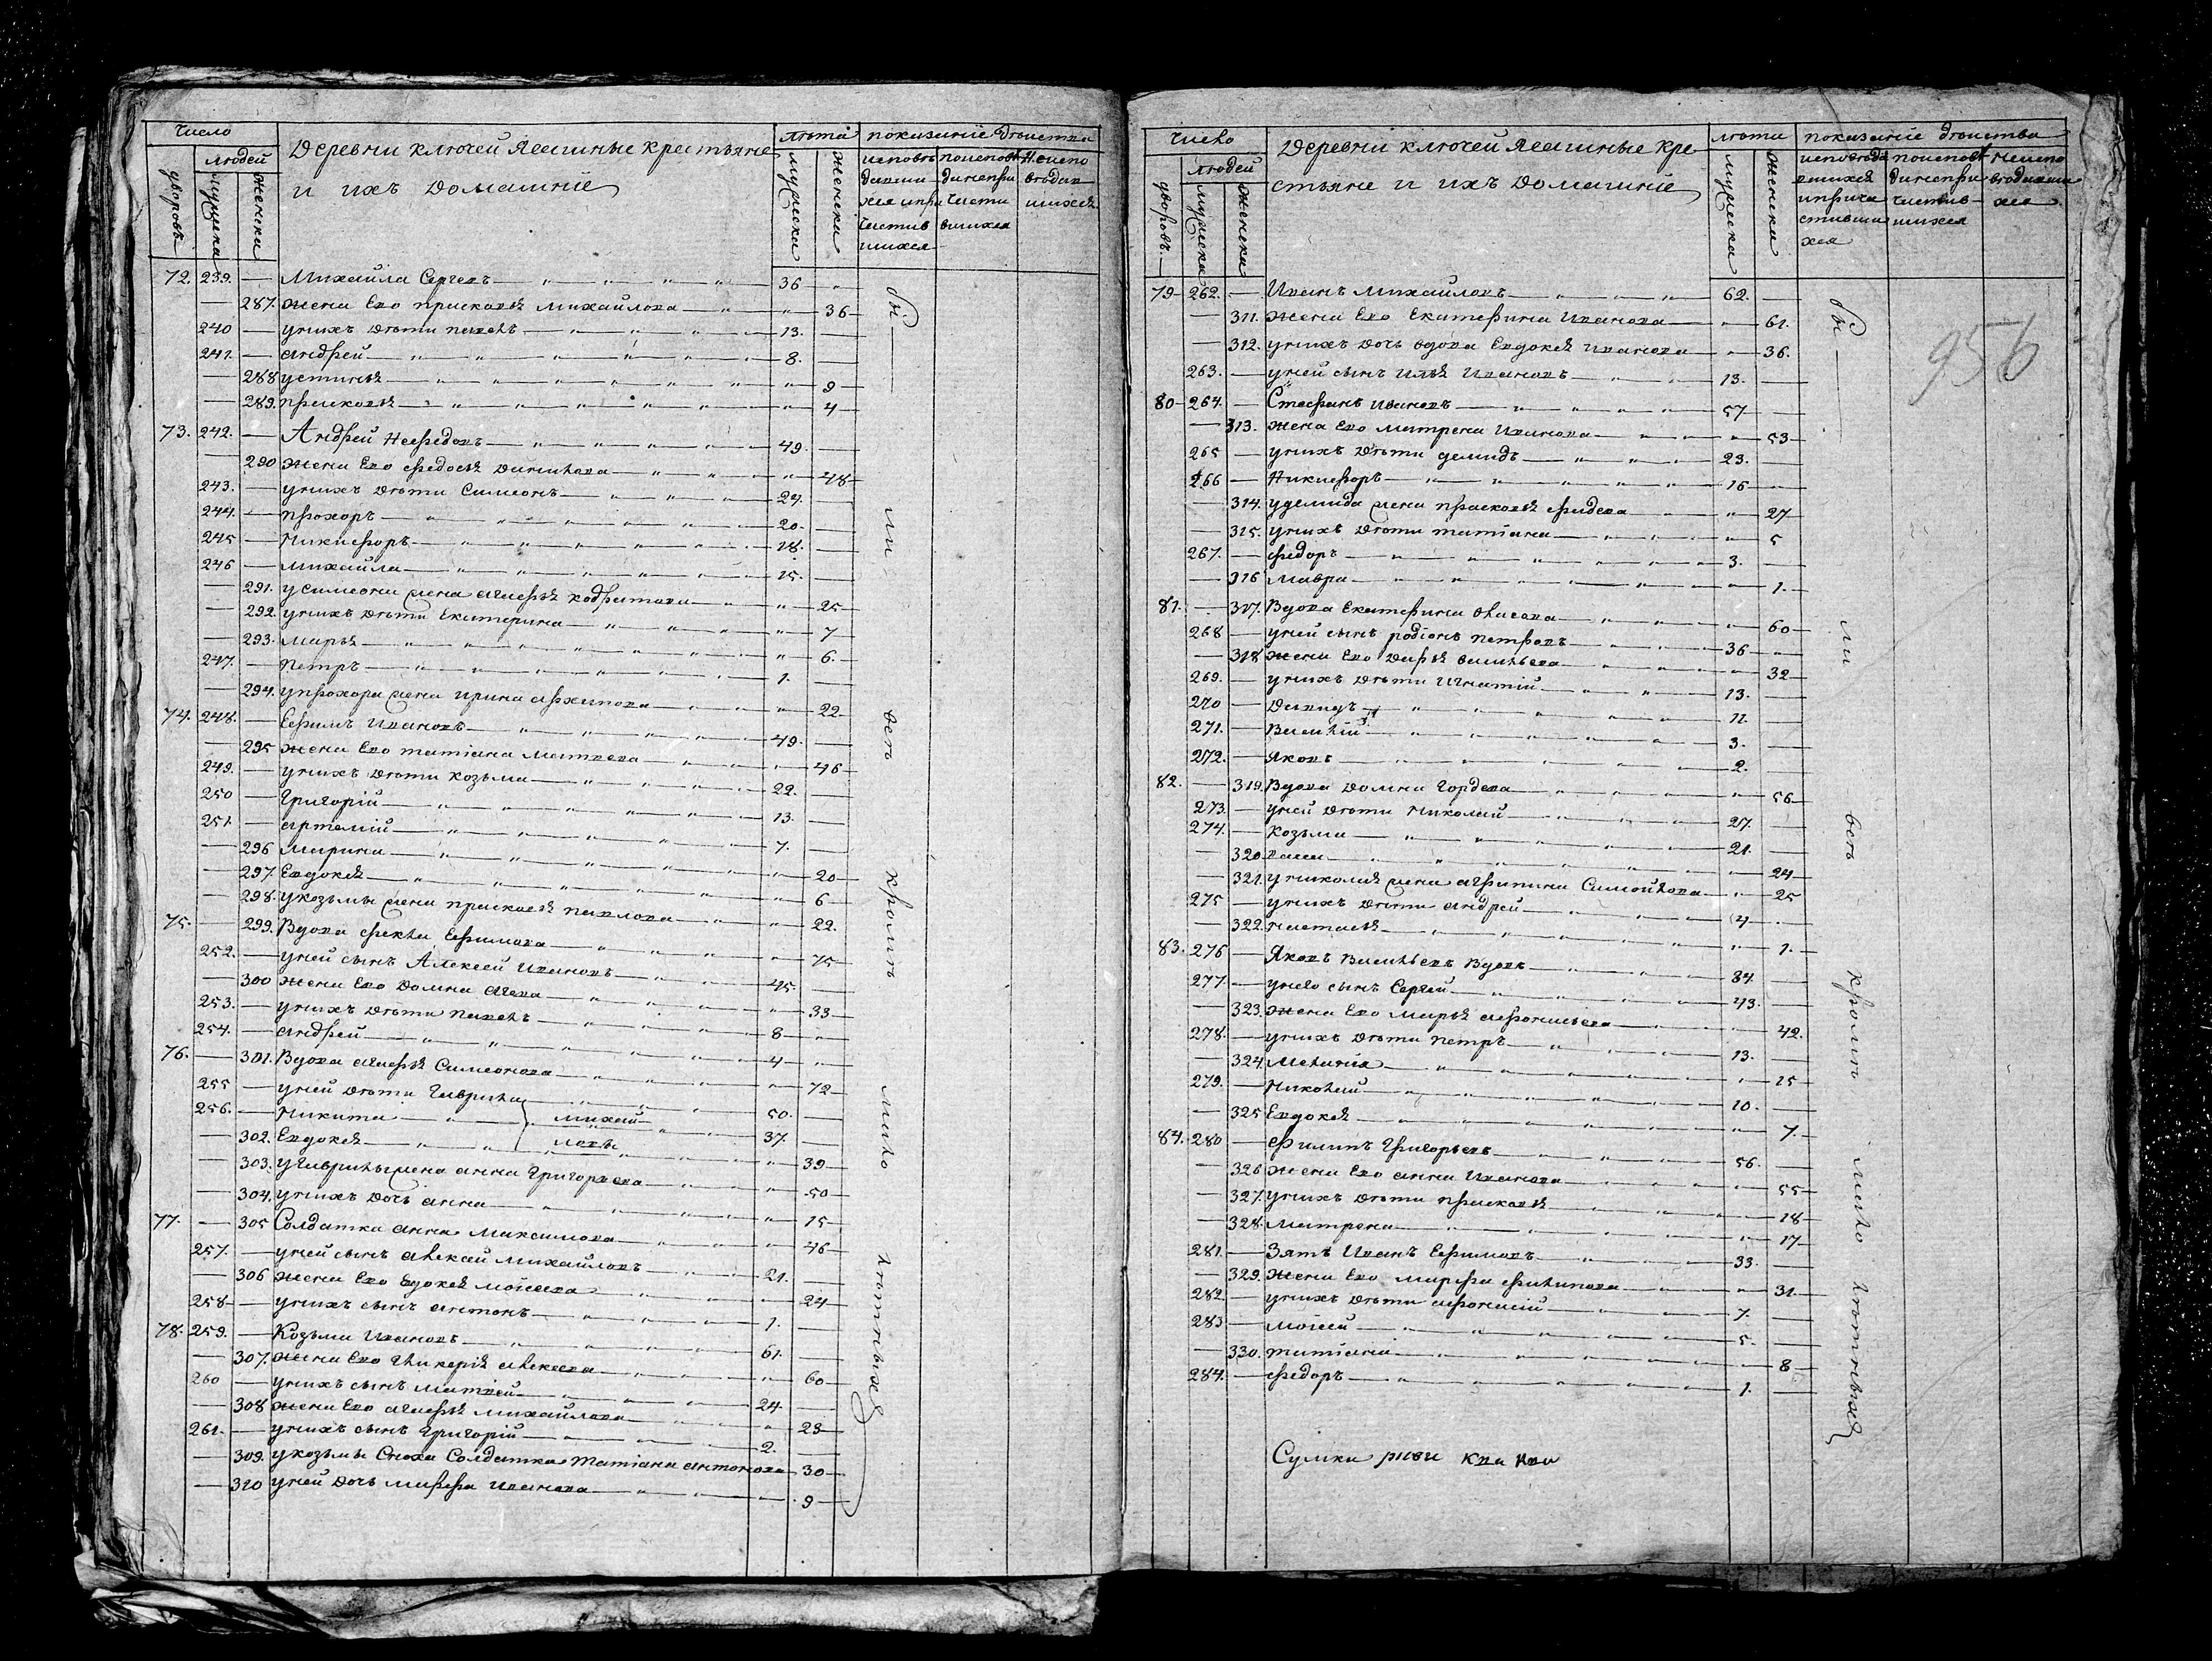 Число
людей
дворовъ
мужеска
женска
Деревни ключей Ясашные крестьяне
и ихъ домашніе
лѣта
мужеска
женска
показаніе дѣиства
72. 239. — Михайла Сергевъ 36
287. жена Ево прасковья михайлова 36
240 — унихъ дѣти павелъ 13.
241. — андрей 8.
288 устинья 9
289. прасковья 4
73. 242. — Андрей Нефедовъ 49.
290 жена Ево федосья данилова 48
243. — унихъ дѣти Симеонъ 24.
244. — прохоръ 20.
245 — Никифоръ 18.
246 — михайла 15.
291. усимеона жена агафья кодратова 25
292. унихъ дѣти Екатерина 7
293. марья 6.
247. — петръ 1.
294. упрохора жена ирина архипова 22
74. 248. — Ефимъ Ивановъ 49.
295 жена Ево татіана матвева 46
249. — унихъ дѣти козьма 22.
250 — григорій 13.
251 — артемій 7.
296 марина 20
297. Евдокея 6
298. укозьмы жена прасковья павлова 22.
75. — 299. Вдова фекла Ефимова 75
252. — уней сынъ Алексей Ивановъ 45.
300 жена Ево домна 33
253. — унихъ дѣти павелъ 8
254. — андрей 4
76. — 301. Вдова агафья Симеонова 72
255 — уней дѣти гаврила 50.
256. — Никита 37.
михай
ловы
302. Евдокея 39
303. угаврилы жена анна григорева 50
304. унихъ дочь анна 15
77. — 305 Солдатка анна максимова 46
257. — уней сынъ алексей михайловъ 21.
306 жена Ево Евдокея мойсева 24
258 — унихъ сынъ антонъ 1.
78. 259. — Козьма Ивановъ 61.
307. жена Ево гликерія алексева 60
260 — унихъ сынъ матвей 24
308 жена Ево агафья михайлова 23
261. — унихъ сынъ григорій 2.
309. укозьмы сноха Солдатка татіана антонова 30
310 уней дочь марфа иванова 9
бы ли всѣ кромѣ мало лѣтныхъ
Число
людей
дворовъ
мужеска
женска
Деревни ключей Ясашные кре
стьяне и ихъ домашніе
лѣта
мужеска
женска
показаніе дѣиства
956
79 262. — Иванъ Михайловъ 62.
311. жена Ево Екатерина Иванова 61.
312. унихъ дочь вдова Евдокея Иванова 36.
263. — уней сынъ илья Ивановъ 13.
80 264. — Стефанъ ивановъ 57
313. жена Ево матрена Иванова 53
265 — унихъ дѣти демидъ 23.
266 — Никифоръ 16
314. удемида жена прасковья 27
315. унихъ дѣти татіана 5
267. — федоръ 3.
316 мавра 1.
81. — 317. Вдова Екатерина власова 60
268 — уней сынъ родіонъ петровъ 36
318 жена Ево дарья васильева 32
269. — унихъ дѣти игнатій 13.
270 — давидъ 11.
271. — Василій 3.
272. — яковъ 2.
82. — 319. Вдова домна гордева 56
273. — уней дѣти николай 27.
274. — козьма 21.
320 24
321. униколая жена агрипина Самойлова 25
275 — унихъ дѣти андрей 4
322. настасья 1.
83. 276 — Яковъ Васильевъ Вдовъ 84.
277. — унево сынъ Сергей 43.
323. жена Ево марья афонасьева 42.
278. — унихъ дѣти петръ 13.
324. меланія 15
279. — николай 10.
325 Евдокея 7.
84. 280 — Филипъ григорьевъ 56.
326 жена Ево анна Иванова 55
327. унихъ дѣти прасковья 18
328. матрена 17
281. — зять Иванъ Ефимовъ 33.
329. жена Ево марфа филипова 31
282. — унихъ дѣти афонасій 7.
283. — мосей 5.
330. татіана 8
284. — федоръ 1.
бы ли всѣ кромѣ мало лѣтныхъ